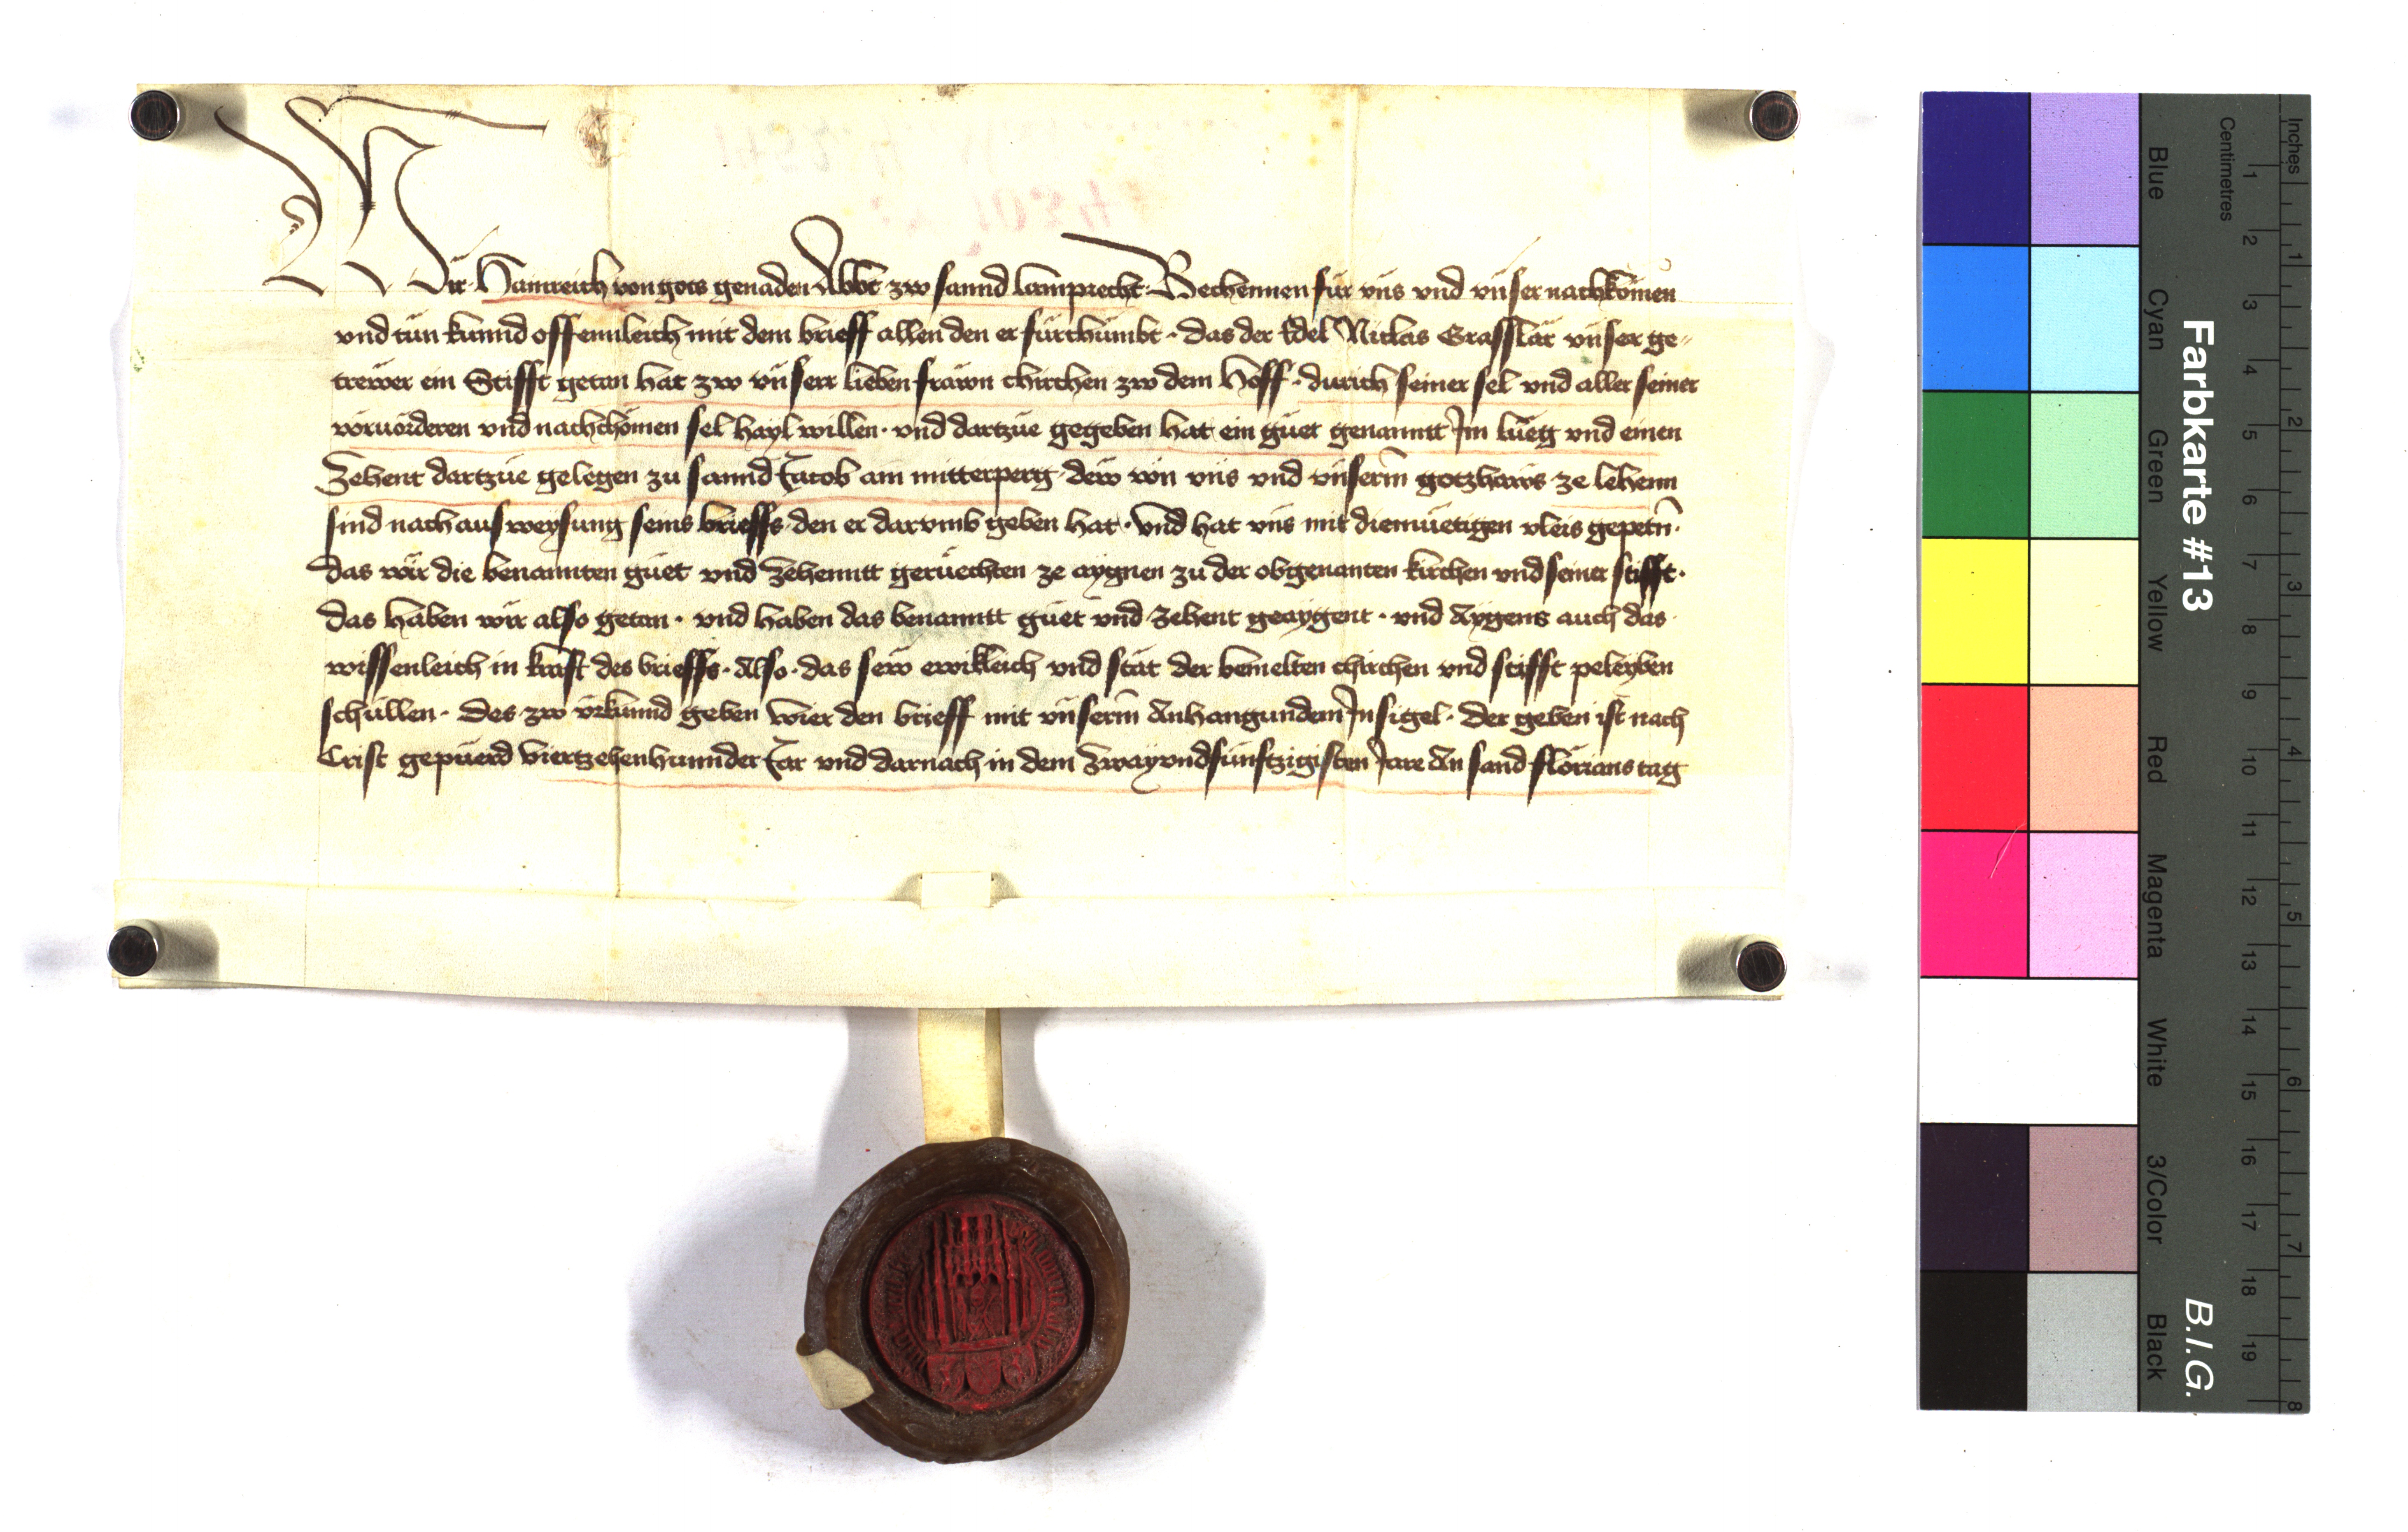 Wir Hainreich von gots genaden Abbt zw sannd lamprecht Bechennen für vns vnd vnser nachkömen
vnd tün kunnd offennleich mit dem brieff allen den er fürchümbt · das der Edel Niclas Grasslär vnser ge-
trewer ein Stifft getan hat zw vnserr lieben frawn chirchen zw dem Hoff · durich seiner sel vnd aller seiner
vöruörderen vnd nachchömen sel hayl willen · vnd dartzue gegeben hat ein güet genanntt Im lueg vnd einen
Zehent dartzue gelegen zu sannd Jacob am mitterperg dew von vns vnd vnserm gotzhaws ze lehenn
sind nach ausweysung seins brieffs den er darvmb geben hat · Vnd hat vns mit diemüetigen vleis gepetn ·
das wir die benannten güet vnd Zehenntt gerüechten ze aygnen zu der obgenanten kirchen vnd seiner stifft ·
das haben wir also getan · vnd haben das benanntt güet vnd zehent geaygent · vnd Aygens auch das
wissenleich in krafft des brieffs · Also · das sew ewikleich vnd stät der bemelten chirchen vnd stifft peleyben
schullen · Des zw vrkunnd geben wier den brieff mit vnserm Anhangundem Insigel · Der geben ist nach
Crist gepuerd viertzehenhunnder Jar vnd darnach in dem Zwayvndfünftzigisten Jare An sand flörians tag
Farbkarte #13
B.I.G.
Inches
Centimetres
1 2 3 4 5 6 7 8 9 10 11 12 13 14 15 16 17 18 19
1 2 3 4 5 6 7 8
Blue
Cyan
Green
Yellow
Red
Magenta
White
3/Color
Black